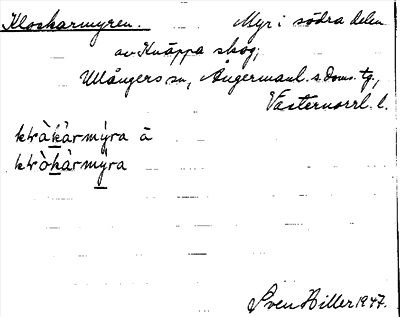 Klockarmyren. Myr i södra delen
av Knäppa skog;
Ullångers sn, Ångermanl. s. Doms. tg.,
Västernorrl. l.
klràkàrmýra å
klròkàrmýra
Sven Hiller 1947.